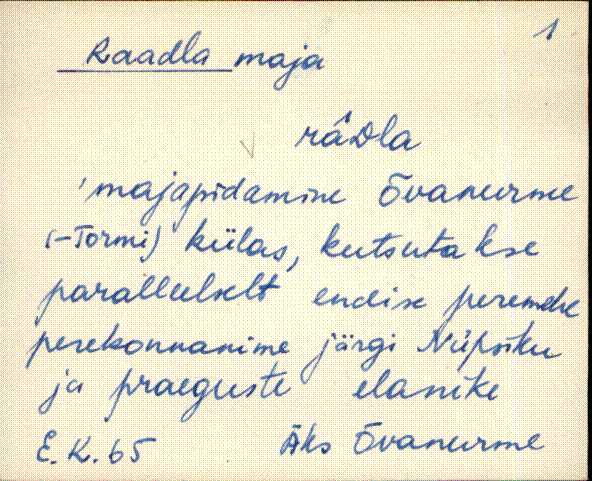 1
Raadla maja
râDla
'majapidamine Õvanurme
(-Tormi) külas, kutsutakse
paralleelselt endise peremehe
perekonnanime järgi Nüpsiku
ja praeguste elanike
E.K.65 Äks Õvanurme